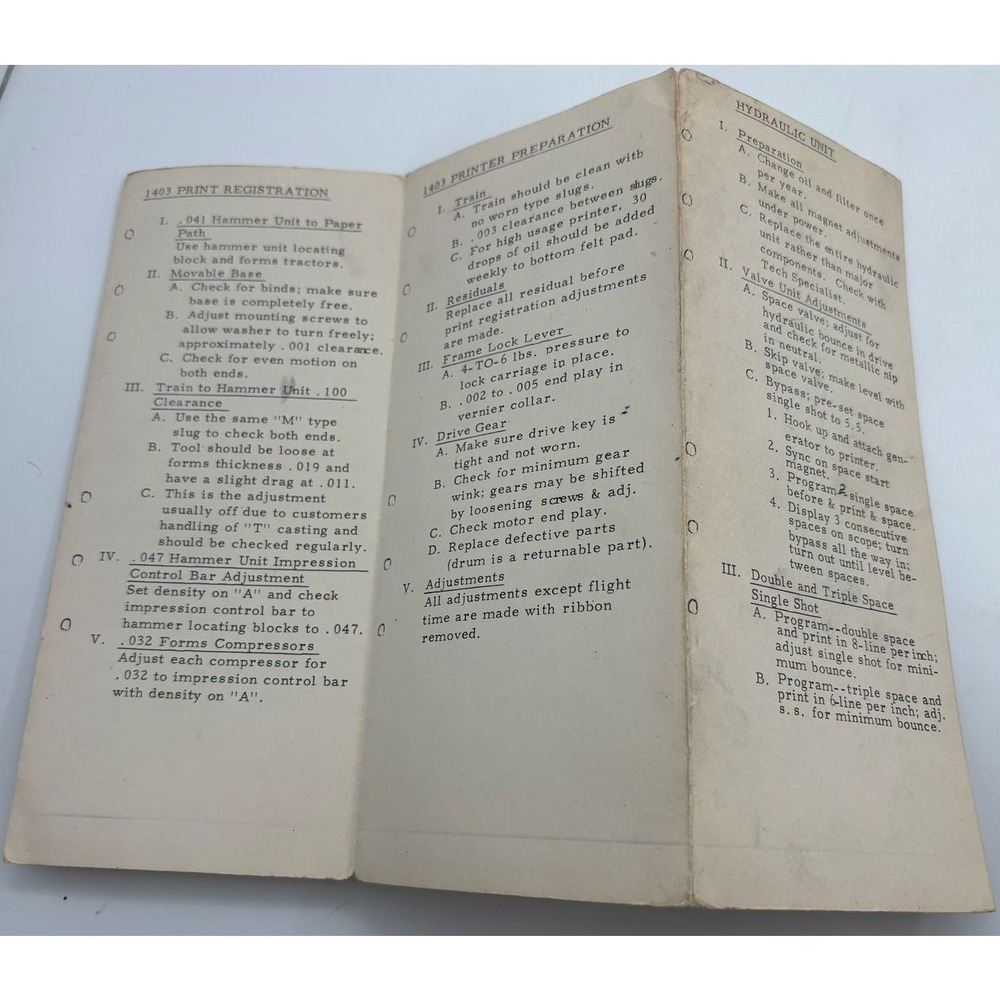 1403 PRINT REGISTRATION
I. .041 Hammer Unit to Paper
Path
Use hammer unit locating
block and forms tractors.
II. Movable Base
A. Check for binds; make sure
base is completely free.
B. Adjust mounting screws to
allow washer to turn freely;
approximately .001 clearance.
C. Check for even motion on
both ends.
III. Train to Hammer Unit .100
Clearance
A. Use the same "M" type
slug to check both ends.
B. Tool should be loose at
forms thickness .019 and
have a slight drag at .011.
C. This is the adjustment
usually off due to customers
handling of "T" casting and
should be checked regularly.
IV. .047 Hammer Unit Impression
Control Bar Adjustment
Set density on "A" and check
impression control bar to
hammer locating blocks to .047.
V. .032 Forms Compressors
Adjust each compressor for
.032 to impression control bar
with density on "A".
1403 PRINTER PREPARATION
I. Train
A. Train should be clean with
no worn type slugs.
B. .003 clearance between slugs.
C. For high usage printer, 30
drops of oil should be added
weekly to bottom felt pad.
II. Residuals
Replace all residual before
print registration adjustments
are made.
III. Frame Lock Lever
A. 4-TO-6 lbs. pressure to
lock carriage in place.
B. .002 to .005 end play in
vernier collar.
IV. Drive Gear
A. Make sure drive key is
tight and not worn.
B. Check for minimum gear
wink; gears may be shifted
by loosening screws & adj.
C. Check motor end play.
D. Replace defective parts
(drum is a returnable part).
V. Adjustments
All adjustments except flight
time are made with ribbon
removed.
HYDRAULIC UNIT
I. Preparation
A. Change oil and filter once
per year.
B. Make all magnet adjustments
under power.
C. Replace the entire hydraulic
unit rather than major
components. Check with
Tech Specialist.
II. Valve Unit Adjustments
A. Space valve; adjust for
hydraulic bounce in drive
and check for metallic nip
in neutral.
B. Skip valve; make level with
space valve.
C. Bypass; pre-set space
single shot to 5.5.
1. Hook up and attach gen-
erator to printer.
2. Sync on space start
magnet.
3. Program 2 single space
before & print & space.
4. Display 3 consecutive
spaces on scope; turn
bypass all the way in;
turn out until level be-
tween spaces.
III. Double and Triple Space
Single Shot
A. Program--double space
and print in 8-line per inch;
adjust single shot for mini-
mum bounce.
B. Program--triple space and
print in 6-line per inch; adj.
s.s. for minimum bounce.